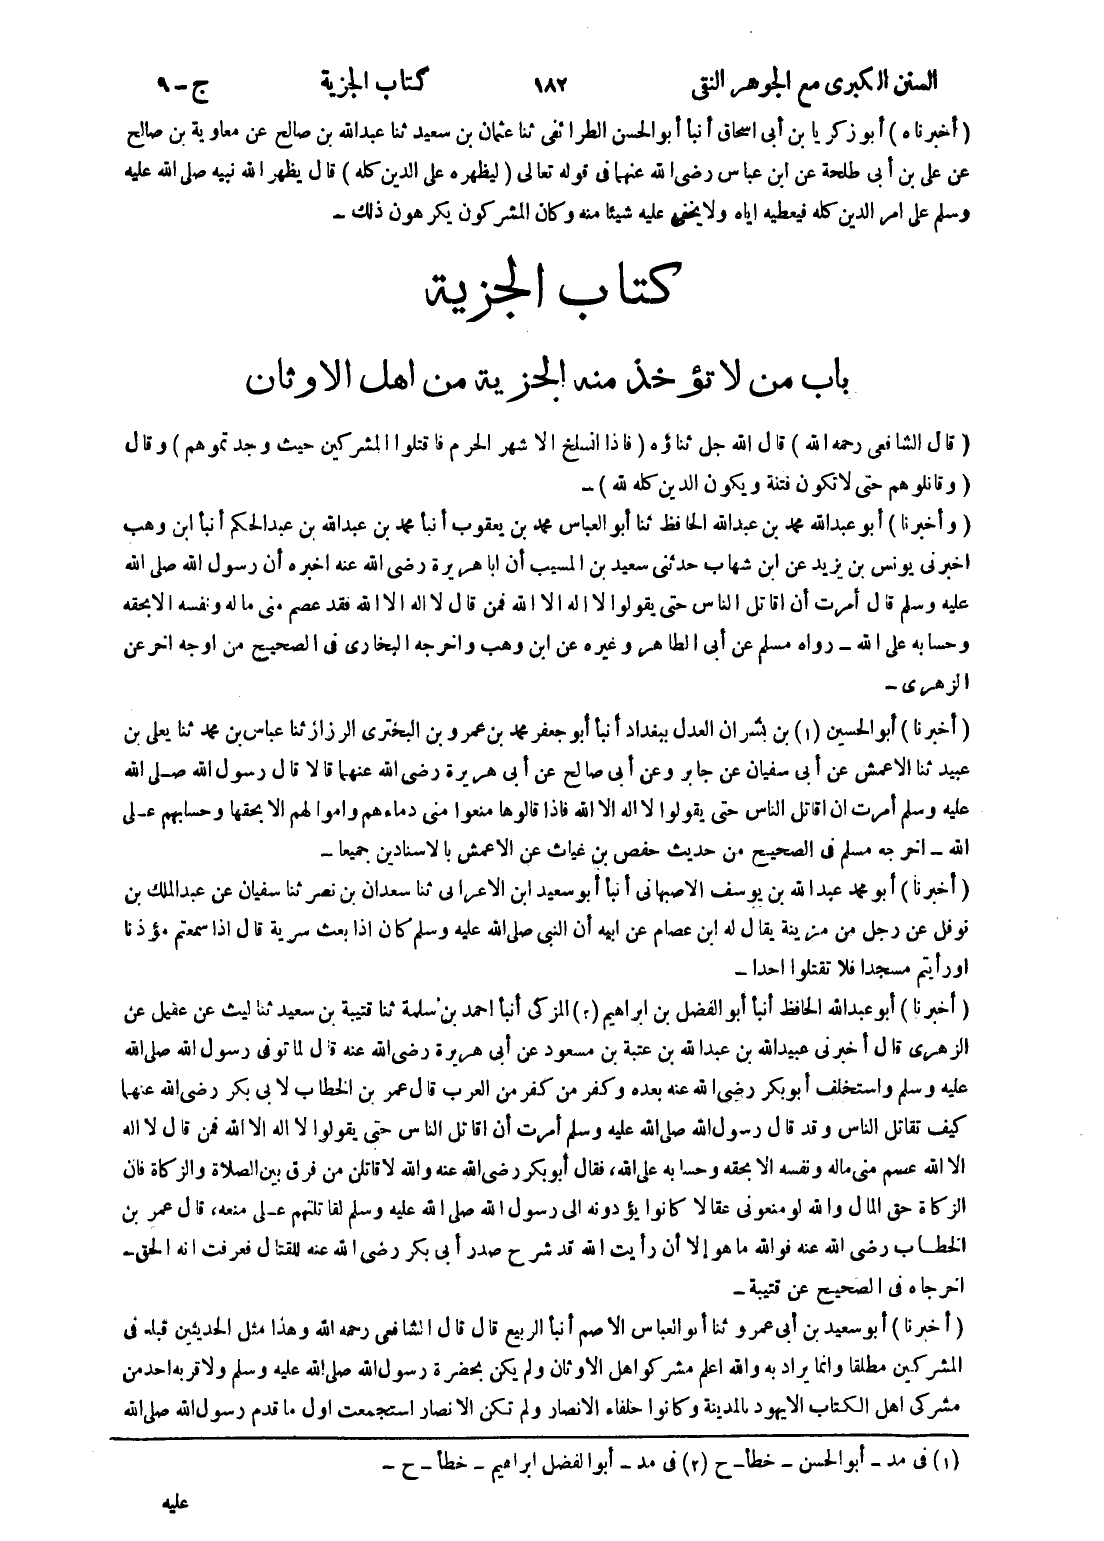 السنن الكبرى مع الجوهر النقى ١٨٢ كتاب الجزية ج-٩
(أخبرناه) أبو زكريا بن أبى اسحاق أنبأ أبوالحسن الطرائفى ثنا عثمان بن سعيد ثنا عبدالله بن صالح عن معاوية بن صالح
عن على بن أبى طلحة عن ابن عباس رضى الله عنهما فى قوله تعالى (ليظهره على الدين كله) قال يظهر الله نبيه صلى الله عليه
وسلم على امر الدين كله فيعطيه اياه ولا يخفى عليه شيئا منه وكان المشركون يكرهون ذلك -
كتاب الجزية
باب من لا تؤخذ منه الجزية من اهل الاوثان
(قال الشافعى رحمه الله) قال الله جل ثناؤه (فاذا انسلخ الاشهر الحرم فاقتلوا المشركين حيث وجدتموهم) وقال
(وقاتلوهم حتى لا تكون فتنة ويكون الدين كله لله) -
(وأخبرنا) أبو عبدالله محمد بن عبدالله الحافظ ثنا أبو العباس محمد بن يعقوب أنبأ محمد بن عبدالله بن عبدالحكم أنبأ ابن وهب
اخبرنى يونس بن يزيد عن ابن شهاب حدثنى سعيد بن المسيب أن ابا هريرة رضى الله عنه اخبره أن رسول الله صلى الله
عليه وسلم قال أمرت أن اقاتل الناس حتى يقولوا لا اله الا الله فمن قال لا اله الا الله فقد عصم منى ماله ونفسه الا بحقه
وحسابه على الله - رواه مسلم عن أبى الطاهر وغيره عن ابن وهب واخرجه البخارى فى الصحيح من اوجه اخر عن
الزهرى -
(أخبرنا) أبوالحسين (١) بن بشران العدل ببغداد أنبأ أبو جعفر محمد بن عمرو بن البخترى الرزاز ثنا عباس بن محمد ثنا يعلى بن
عبيد ثنا الاعمش عن أبى سفيان عن جابر وعن أبى صالح عن أبى هريرة رضى الله عنهما قالا قال رسول الله صلى الله
عليه وسلم أمرت ان اقاتل الناس حتى يقولوا لا اله الا الله فاذا قالوها منعوا منى دماءهم واموالهم الا بحقها وحسابهم على
الله - اخرجه مسلم فى الصحيح من حديث حفص بن غياث عن الاعمش بالاسنادين جميعا -
(أخبرنا) أبو محمد عبدالله بن يوسف الاصبهانى أنبأ أبو سعيد ابن الاعرابى ثنا سعدان بن نصر ثنا سفيان عن عبدالملك بن
نوفل عن رجل من مزينة يقال له ابن عصام عن ابيه أن النبى صلى الله عليه وسلم كان اذا بعث سرية قال اذا سمعتم مؤذنا
اورأيتم مسجدا فلا تقتلوا احدا -
(أخبرنا) أبو عبدالله الحافظ أنبأ أبوالفضل بن ابراهيم (٢) المزكى أنبأ احمد بن سلمة ثنا قتيبة بن سعيد ثنا ليث عن عقيل عن
الزهرى قال أخبرنى عبيدالله بن عبدالله بن عتبة بن مسعود عن أبى هريرة رضى الله عنه قال لما توفى رسول الله صلى الله
عليه وسلم واستخلف أبوبكر رضى الله عنه بعده وكفر من كفر من العرب قال عمر بن الخطاب لابى بكر رضى الله عنهما
كيف تقاتل الناس وقد قال رسول الله صلى الله عليه وسلم أمرت أن اقاتل الناس حتى يقولوا لا اله الا الله فمن قال لا اله
الا الله عصم منى ماله ونفسه الا بحقه وحسابه على الله، فقال أبوبكر رضى الله عنه والله لاقاتلن من فرق بين الصلاة والزكاة فان
الزكاة حق المال والله لو منعونى عقالا كانوا يؤدونه الى رسول الله صلى الله عليه وسلم لقاتلتهم على منعه، قال عمر بن
الخطاب رضى الله عنه فوالله ما هو إلا أن رأيت الله قد شرح صدر أبى بكر رضى الله عنه للقتال فعرفت انه الحق -
اخرجاه فى الصحيح عن قتيبة -
(أخبرنا) أبو سعيد بن أبى عمرو ثنا أبوالعباس الاصم أنبأ الربيع قال قال الشافعى رحمه الله وهذا مثل الحديثين قبله فى
المشركين مطلقا وانما يراد به والله اعلم مشركو اهل الاوثان ولم يكن بحضرة رسول الله صلى الله عليه وسلم ولا قربه احد من
مشركى اهل الكتاب الا يهود بالمدينة وكانوا حلفاء الانصار ولم تكن الانصار استجمعت اول ما قدم رسول الله صلى الله
(١) فى مد - أبوالحسن - خطأ - ح (٢) فى مد - أبوالفضل ابراهيم - خطأ - ح -
عليه